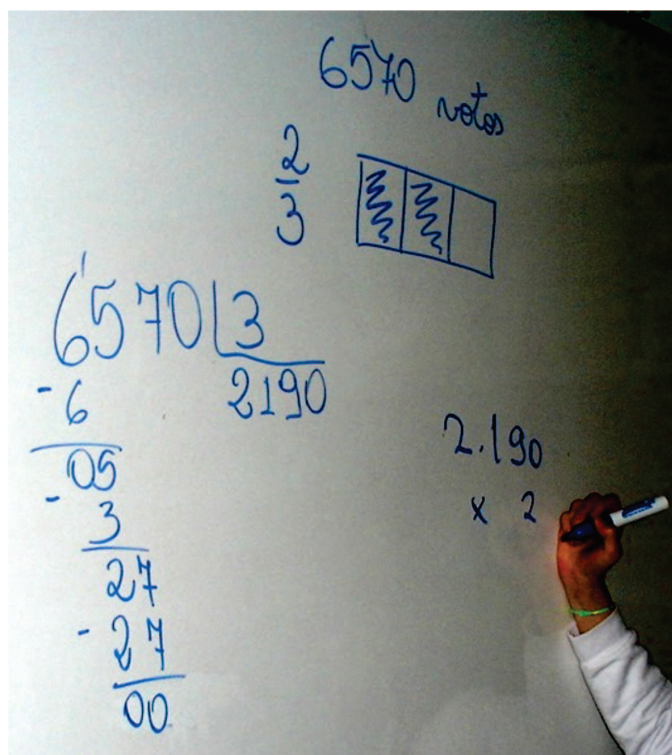 6570 votos
2
3
6570 3
2190
- 6
05
- 3
27
- 27
00
2.190
x 2